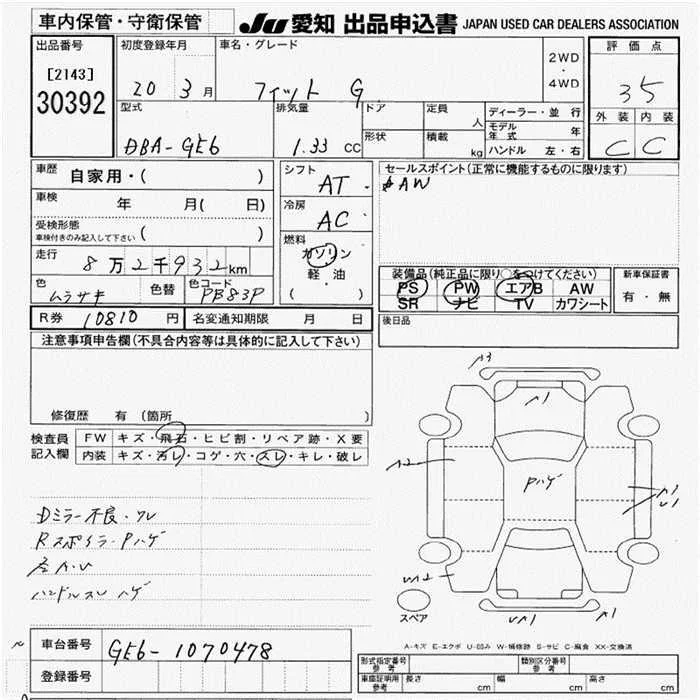 車内保管・守衛保管
JU 愛知 出品申込書 JAPAN USED CAR DEALERS ASSOCIATION
出品番号
[2143]
30392
初度登録年月
20 3月
車名・グレード
フィット G
2WD
・
4WD
評価点
35
外装 内装
C C
型式
DBA-GE6
排気量
1.33 CC
ドア
定員
人
形状
積載
kg
ディーラー・並行
モデル年式 年
ハンドル 左・右
車歴
自家用・( )
車検
年 月( 日)
受検形態
車検付きのみ記入して下さい ( )
走行
8万2千932km
色
ムラサキ
色替
色コード
PB83P
シフト
AT
冷房
AC
燃料
ガソリン
軽・油
( )
セールスポイント(正常に機能するものに限ります)
AW
装備品(純正品に限り○をつけてください)
PS PW エアB AW
SR ナビ TV カワシート
新車保証書
有・無
R券 10810 円
名変通知期限 月 日
後日品
注意事項申告欄(不具合内容等は具体的に記入して下さい)
修復歴 有 (箇所 )
検査員
記入欄
FW キズ・飛石・ヒビ割・リペア跡・X要
内装 キズ・汚レ・コゲ・穴・スレ・キレ・破レ
Dミラー不良・ワレ
Rスポイラーpハゲ
左A・U
ハンドルスレ ハゲ
A3
A1
A2
Pハゲ
A1
U1
UA2
UA1
A1
スペア
A-キズ E-エクボ U-凹み W-補修跡 S-サビ C-腐食 XX-交換済
車台番号
GE6-1070478
登録番号
形式指定番号
参考
類別区分番号
参考
車庫証明用
参考
長さ cm 幅 cm 高さ cm